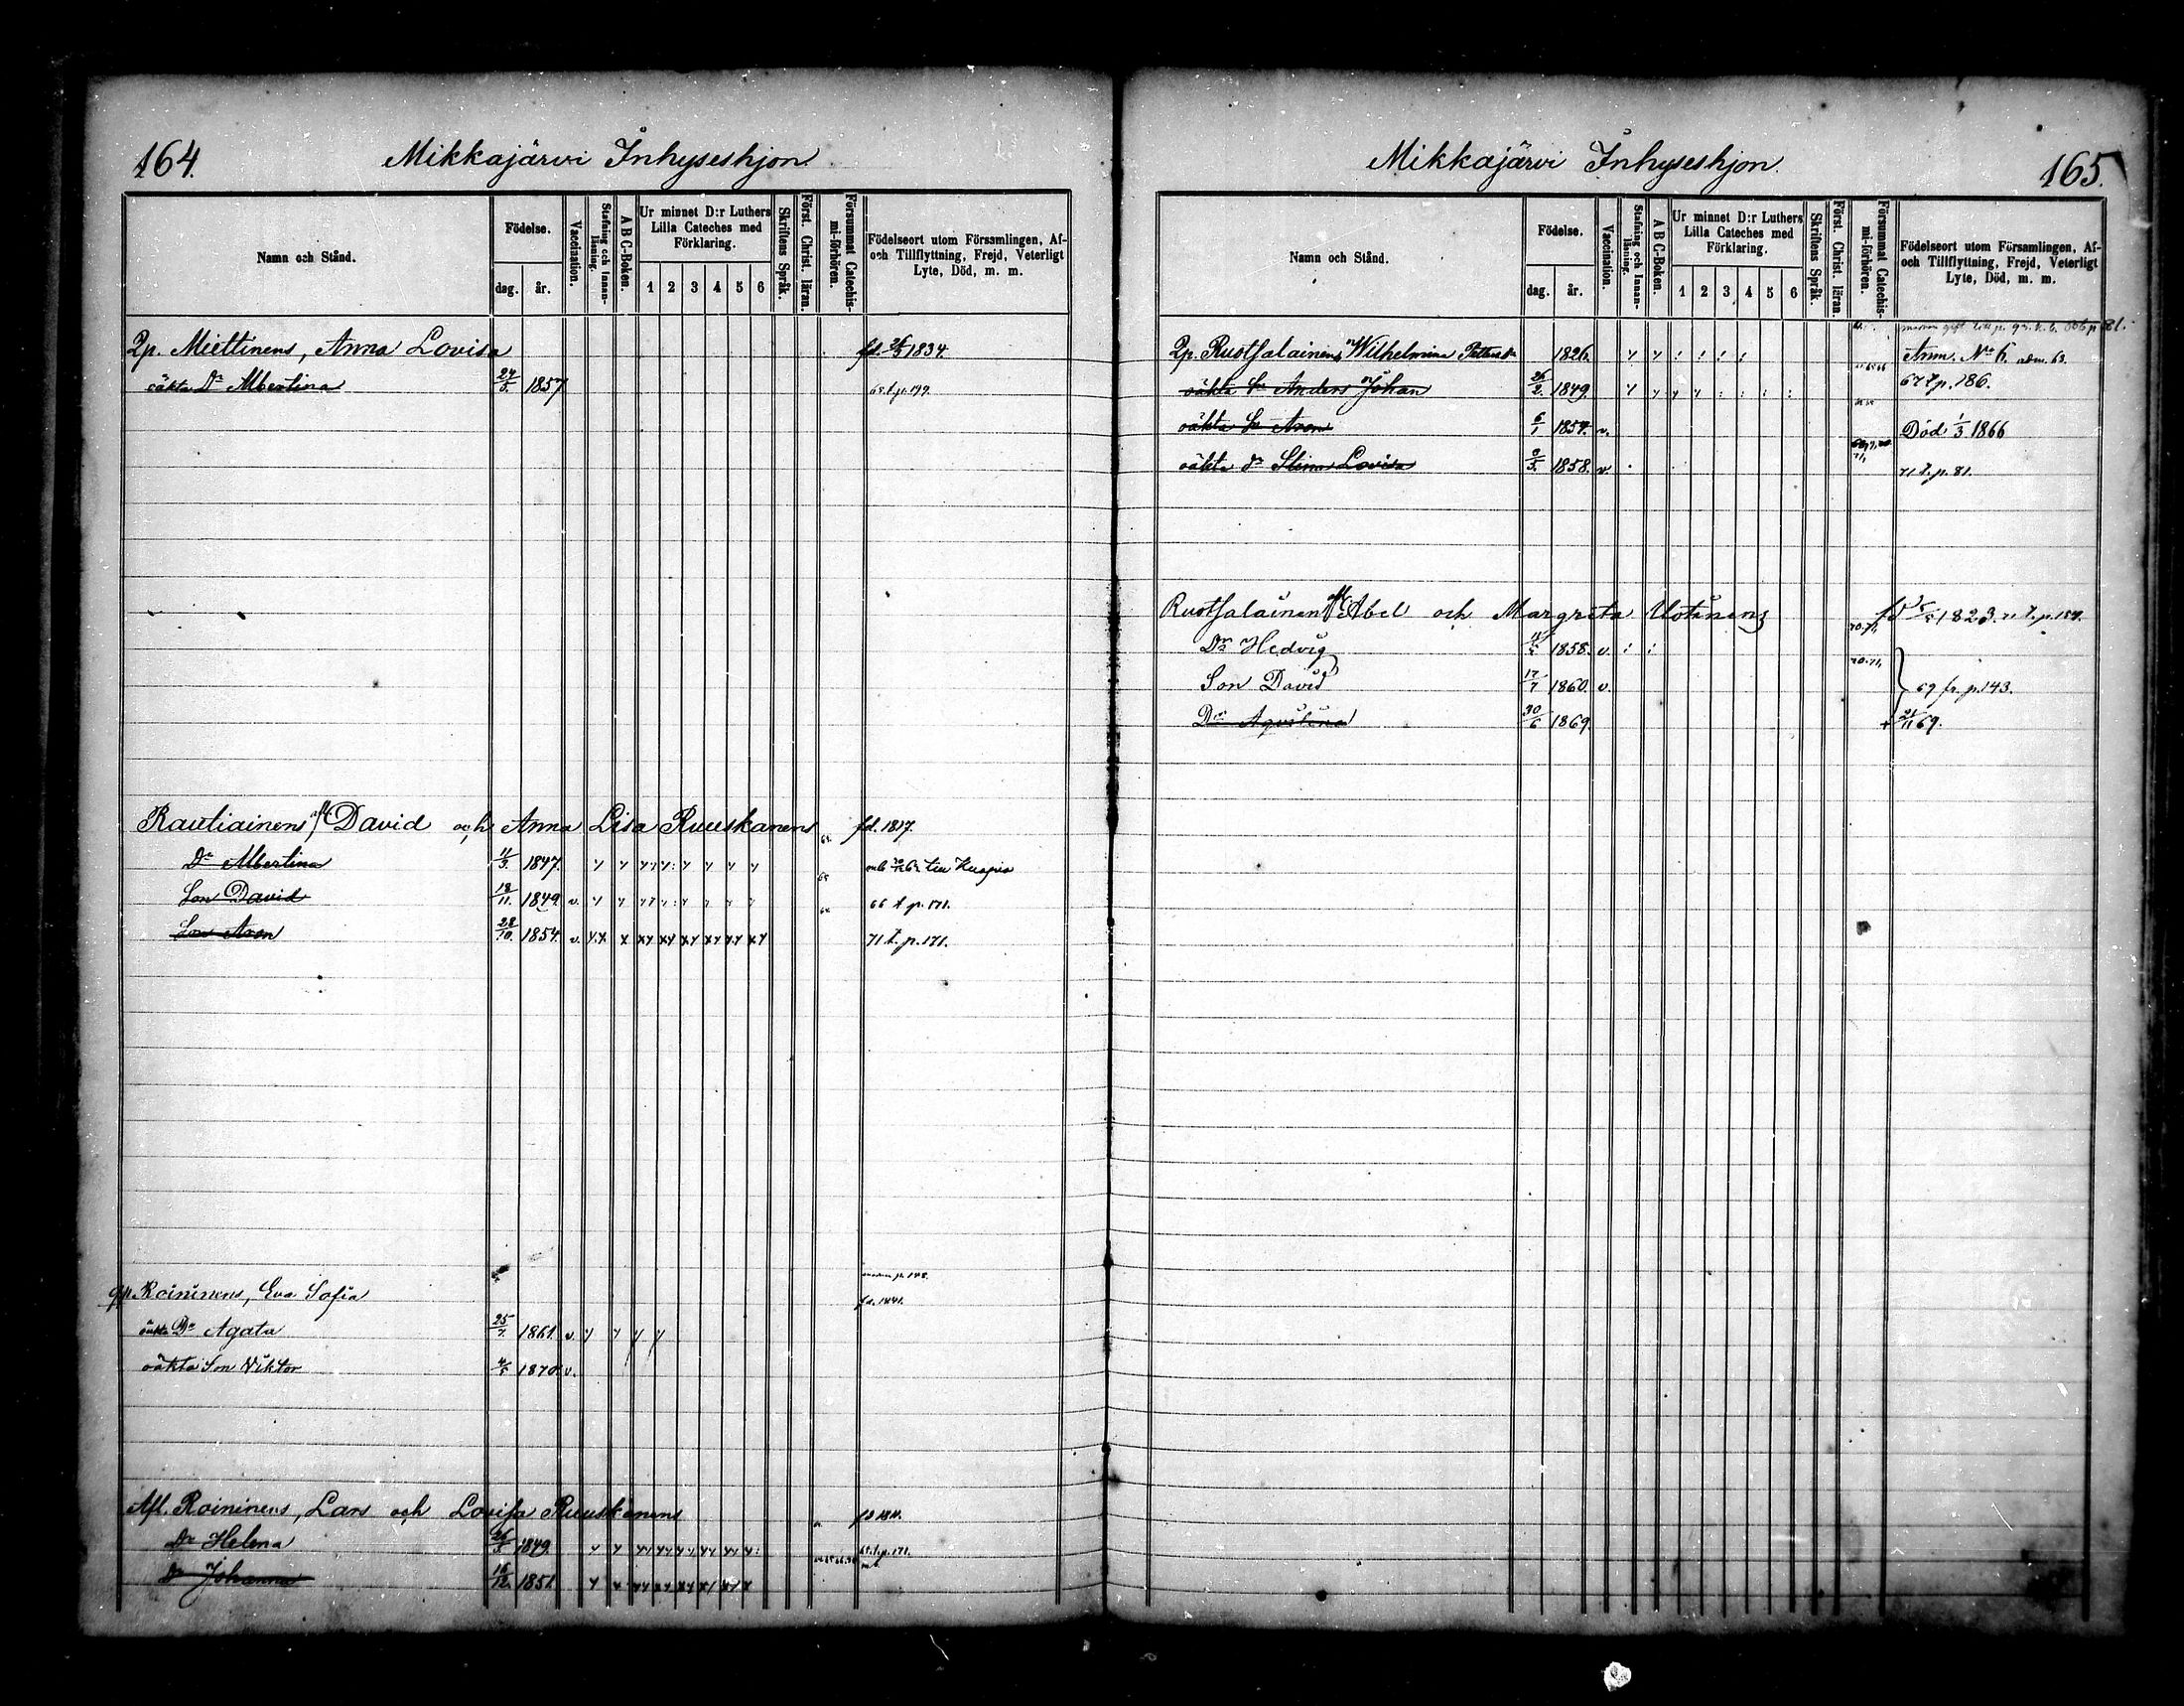 164.
Mikkajärvi Inhyseshjon.
Namn och Stånd.
Födelse.
dag.
år.
Vaccination.
Stafning och Innanläsning.
A B C-Boken.
Ur minnet D:r Luthers Lilla Cateches med Förklaring.
1 2 3 4 5 6
Skriftens Språk.
Först. Christ. läran.
Försummat Catechismi-förhören.
Födelseort utom Församlingen, Af- och Tillflyttning, Frejd, Veterligt Lyte, Död, m. m.
Qp. Miettinens, Anna Lovisa fd. 1834
oäkta Dr Albertina 24/5. 1857
Rautiainens, afl. David och Anna Lisa Ruuskanens fd. 1817.
Dr Albertina 11/3. 1847. till Kuopio
Son David 18/11. 1849. v. 66 t. p. 171.
Son Aron 28/10. 1854. v. 71 t. p. 171.
qp. Roininens, Eva Sofia fd. 1841.
oäkta Dr Agata 25/7. 1861. v.
oäkta Son Viktor 1870. v.
Afl. Roininens, Lars och Lovisa Ruuskanens fd 1811.
Dr Helena 26/3. 1849. t. p. 171.
Dr Johanna 16/12. 1851.
165.
Mikkajärvi Inhyseshjon.
Namn och Stånd.
Födelse.
dag.
år.
Vaccination.
Stafning och Innanläsning.
A B C-Boken.
Ur minnet D:r Luthers Lilla Cateches med Förklaring.
1 2 3 4 5 6
Skriftens Språk.
Först. Christ. läran.
Försummat Catechismi-förhören.
Födelseort utom Församlingen, Af- och Tillflyttning, Frejd, Veterligt Lyte, Död, m. m.
Qp. Ruotsalainens, Wilhelmina 1826. Anm. No 6. adm. 63.
oäkta Sn Anders Johan 26/2. 1849. 67 t. p. 186.
oäkta Sn Aron 6/1 1854. v. Död 1/3 1866
oäkta Dr Stina Lovisa 9/3. 1858. v 71 t. p. 81.
Ruotsalainen, Abel och Margreta Uotinens fd 1823. t. p. 154.
Dr Hedvig 1858. v. 70.71,
Son David 17/7 1860. v. 70.71, 69 fr. p. 143.
Dr Aqvilina 30/6 1869. + 69.